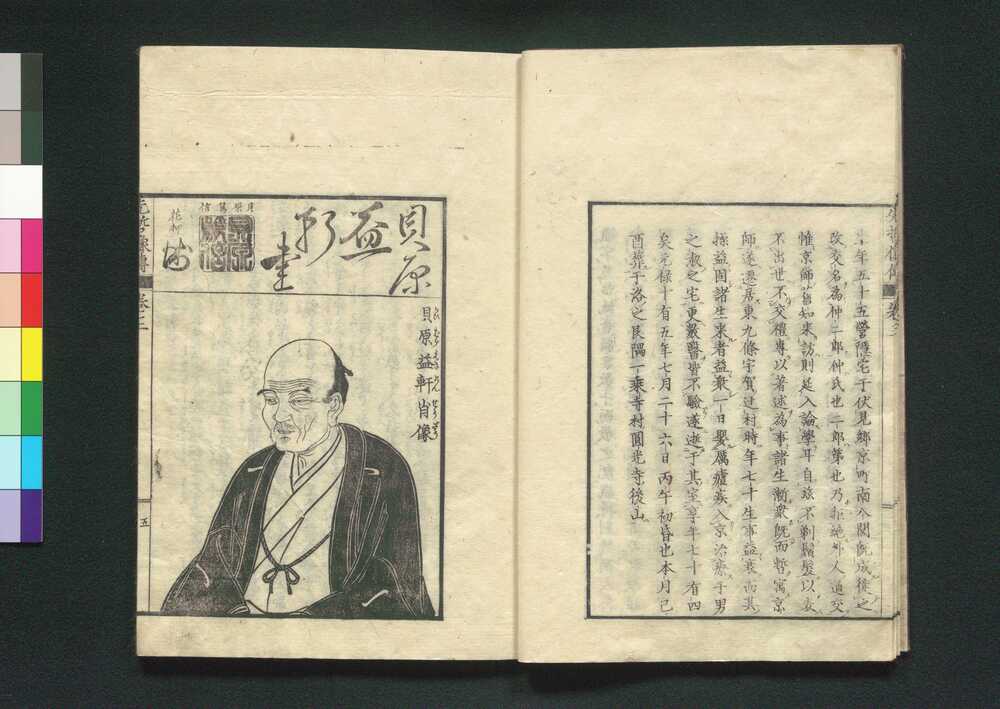 生年五十五營隱宅于伏見鄉京町南八間既成徙之
改交名為仲二郎仲氏也二郎第也乃拒絕外人追交
惟京師舊知来訪則延入論學耳自玆不剃鬚髮以衰
不出世不交禮專以著述為事諸生漸衆既而暫寓京
師遂遷居東九條宇賀辻村時年七十生事益衰而其
操益固諸生来者益衆一日嬰厲瘧疾入京治療于男
之淑之宅更數醫皆不驗遂逝于其室享年七十有四
矣元禄十有五年七月二十六日丙午初昏也本月己
酉葬于洛之艮隅一乘寺村圓光寺後山
貝原
益
軒
書
貝原篤信
貝原益軒肖像
かいばらえきけんせうぞう
五